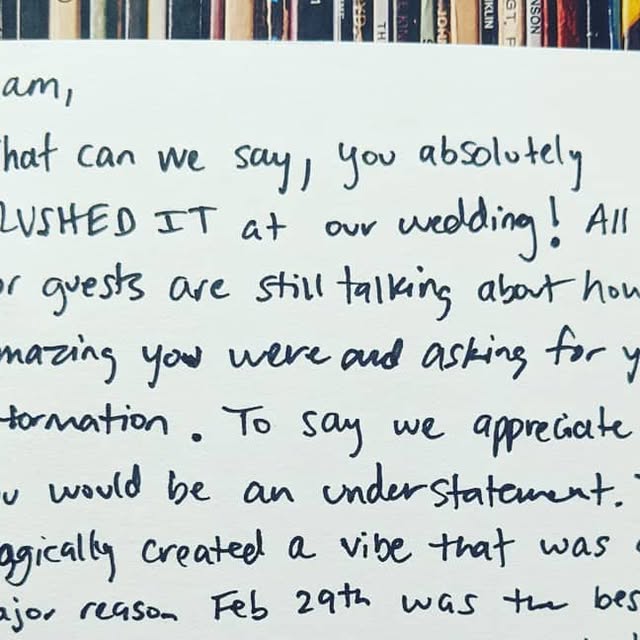 KLIN
GT. F
NSON
TH
am,
hat can we say, you absolutely
RUSHED IT at our wedding! All
or guests are still talking about how
mazing you were and asking for y
formation. To say we appreciate
u would be an understatement.
agically created a vibe that was
ajor reason Feb 29th was the bes